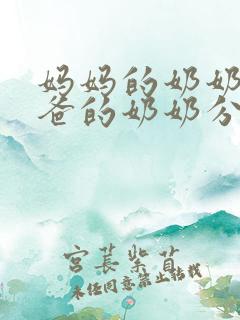 妈妈的奶奶
爸的奶奶分
宫苌紫苜
未经同意禁止转载